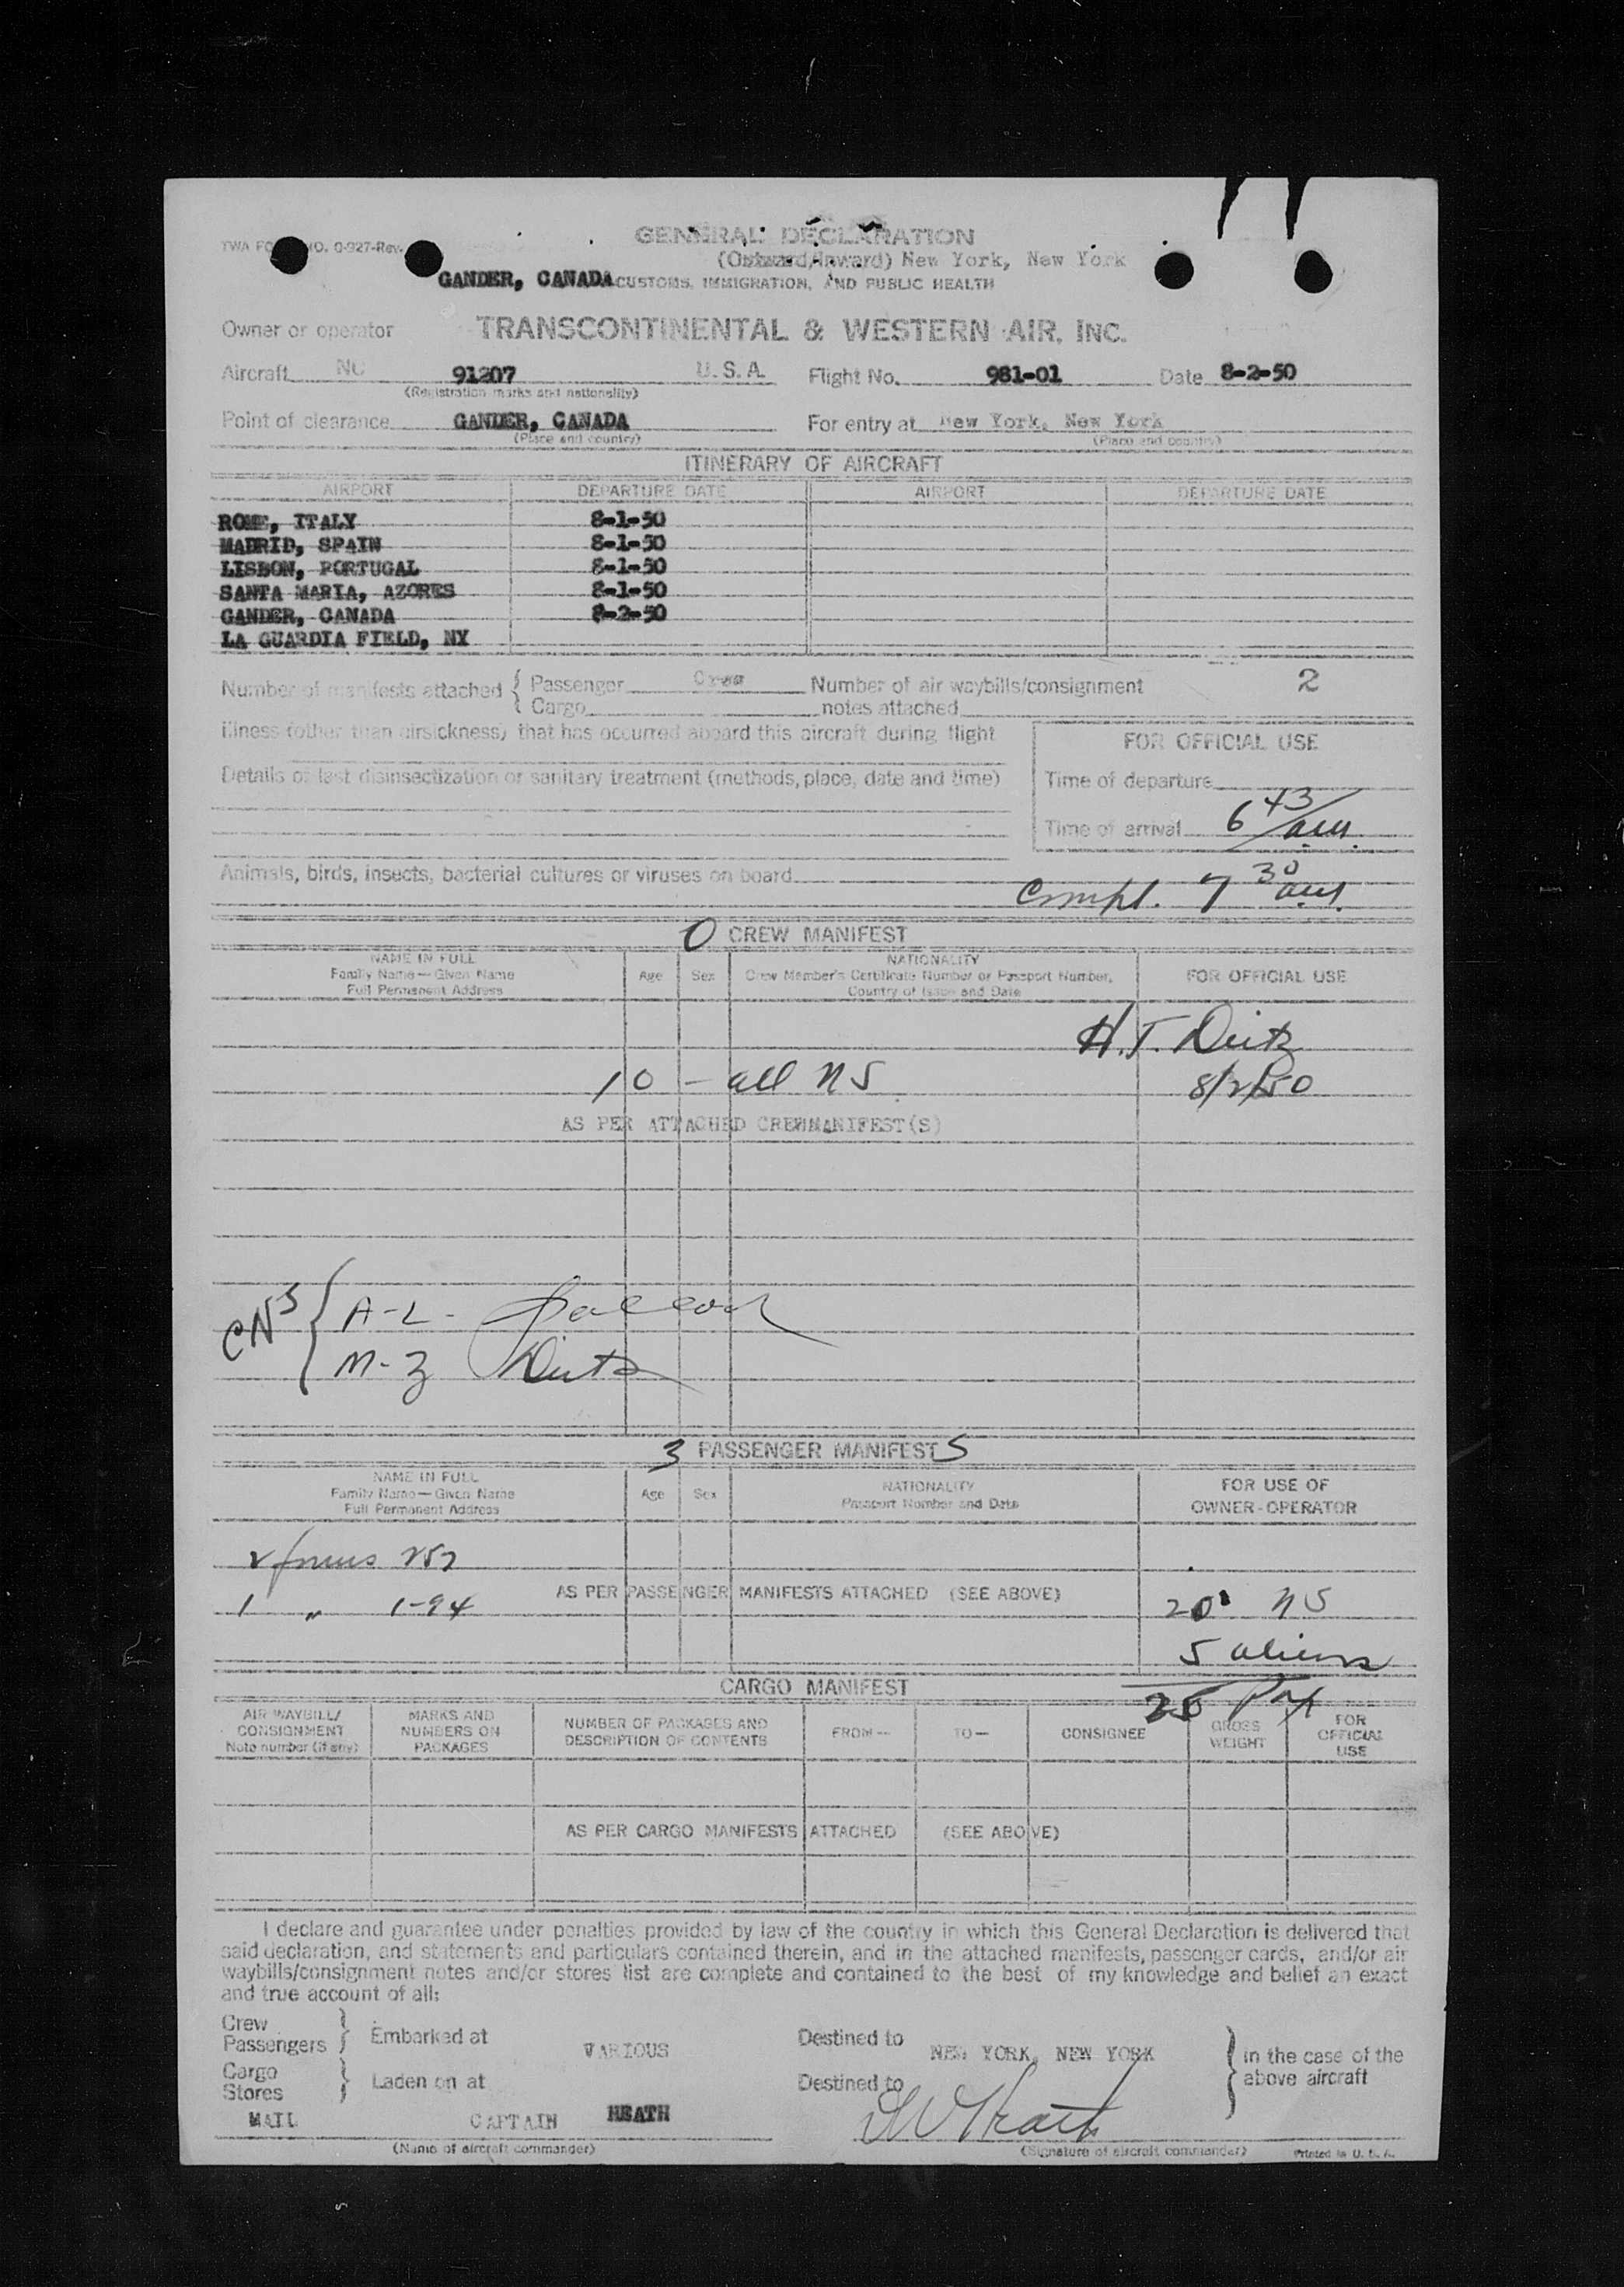 TWA FO NO. 0-927-Rev.
GENERAL DECLARATION
(Outward/Inward) New York, New York
GANDER, CANADA CUSTOMS, IMMIGRATION, AND PUBLIC HEALTH
Owner or operator TRANSCONTINENTAL & WESTERN AIR, INC.
Aircraft NC 91207 U.S.A. Flight No. 981-01 Date 8-2-50
(Registration marks and nationality)
Point of clearance GANDER, CANADA For entry at New York, New York
(Place and country) (Place and country)
ITINERARY OF AIRCRAFT
AIRPORT DEPARTURE DATE AIRPORT DEPARTURE DATE
ROME, ITALY 8-1-50
MADRID, SPAIN 8-1-50
LISBON, PORTUGAL 8-1-50
SANTA MARIA, AZORES 8-1-50
GANDER, CANADA 8-2-50
LA GUARDIA FIELD, NY
Number of manifests attached { Passenger Crew Number of air waybills/consignment 2
Cargo notes attached
Illness (other than airsickness) that has occurred aboard this aircraft during flight
FOR OFFICIAL USE
Details of last disinsectization or sanitary treatment (methods, place, date and time)
Time of departure
Time of arrival 6 43/am.
Animals, birds, insects, bacterial cultures or viruses on board
Compl. 7 30 am.
0 CREW MANIFEST
NAME IN FULL
Family Name—Given Name
Full Permanent Address
Age Sex
NATIONALITY
Crew Member's Certificate Number or Passport Number,
Country of Issue and Date
FOR OFFICIAL USE
H.T. Deitz
10 - all NS 8/2/50
AS PER ATTACHED CREWMANIFEST(S)
CNS { A-L-
M-Z Deitz
3 PASSENGER MANIFEST S
NAME IN FULL
Family Name—Given Name
Full Permanent Address
Age Sex
NATIONALITY
Passport Number and Date
FOR USE OF
OWNER-OPERATOR
257
1 " 1-94 AS PER PASSENGER MANIFESTS ATTACHED (SEE ABOVE) 20 NS
5 aliens
25 Pax
CARGO MANIFEST
AIR WAYBILL/
CONSIGNMENT
Note number (if any)
MARKS AND
NUMBERS ON
PACKAGES
NUMBER OF PACKAGES AND
DESCRIPTION OF CONTENTS
FROM— TO— CONSIGNEE
GROSS
WEIGHT
FOR
OFFICIAL
USE
AS PER CARGO MANIFESTS ATTACHED (SEE ABOVE)
I declare and guarantee under penalties provided by law of the country in which this General Declaration is delivered that
said declaration, and statements and particulars contained therein, and in the attached manifests, passenger cards, and/or air
waybills/consignment notes and/or stores list are complete and contained to the best of my knowledge and belief an exact
and true account of all:
Crew
Passengers } Embarked at VARIOUS Destined to NEW YORK, NEW YORK } in the case of the
Cargo
Stores } Laden on at Destined to above aircraft
MAIL CAPTAIN HEATH
(Name of aircraft commander) (Signature of aircraft commander) Printed in U. S. A.